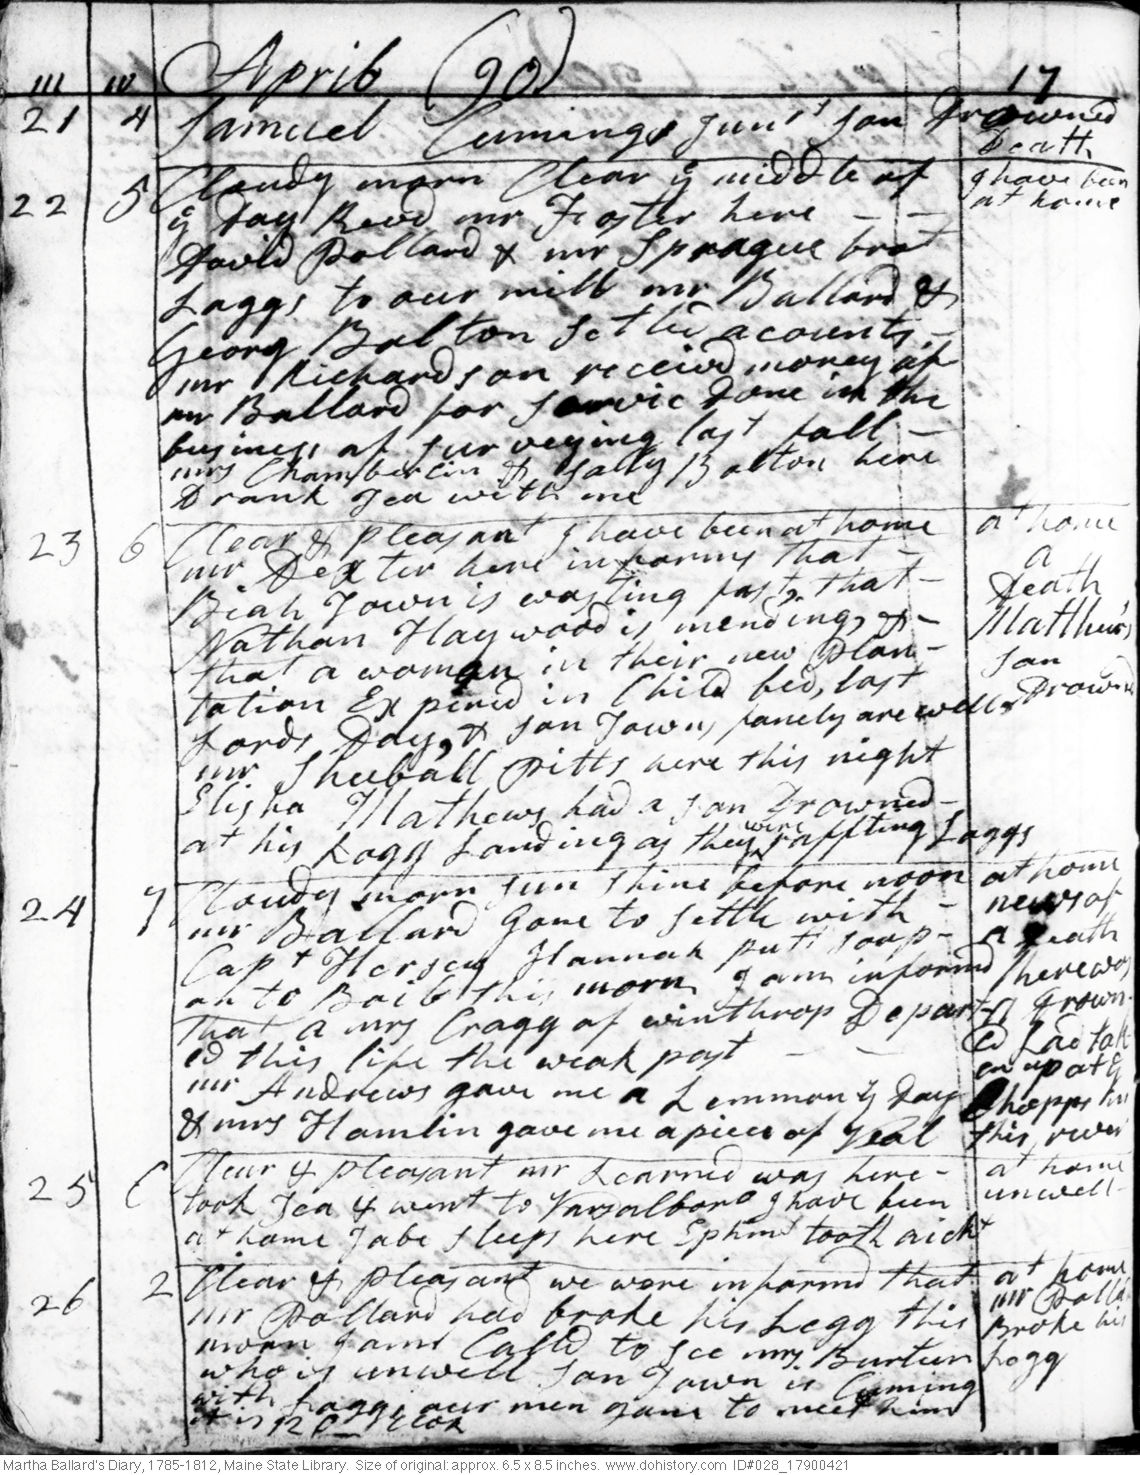 m w April (90) 17
21 4 Samuel Cumings junr son Drowned
Death
22 5 Cloudy morn Clear ye middle of
I have been
at home
ye Day Revd mr Foster here — —
David Pollard & mr Sprague brot
Loggs to our mill mr Ballard &
Georg Bolton setled acounts —
mr Richardson receivd money of
mr Ballard for servic Done in the
business of surveying last fall —
mrs Chamberlin & Sally Bolton here
Drank Tea with me
23 6 Clear & pleasant I have been at home
at home
a
Death
Matthews
son
Drownd
mr Dexter here informs that —
Biah Town is wasting fast, that —
Nathan Haywood is mending, & —
that a woman in their new Plan-
tation Expired in Child bed, last
Lords Day, & son Towns famely are well
mr Shuball Pitts here this night
Elisha Mathews had a son Drowned —
at his Logg Landing as they were raffting Loggs
24 7 Cloudy morn sun shine before noon
at home
news of
a Death
There was
a Drown-
ed Lad tak
en up at ye
Chopps in
this river
mr Ballard Gone to settle with —
Capt Hersey Hannah putt soap-
ah to Boil this morn I am informd
that a mrs Cragg of winthrop Depart-
ed this life the weak past — —
mr Andrews gave me a Lemmon ye Day
& mrs Hamlin gave me a piece of Veal
25 C Clear & pleasant mr Learned was here —
at home
unwell
took Tea & went to Varsalboro I have been
at home Jabe sleeps here Ephm tooth aicht
26 2 Clear & pleasant we were informd that
at home
mr Polld
Broke his
Logg
mr Pollard had broke his Legg this
morn I am Calld to see mrs Burtun
who is unwell son Town is Cuming
with Loggs our men gone to meet him
it is 12 O Clok
Martha Ballard's Diary, 1785-1812, Maine State Library. Size of original: approx. 6.5 x 8.5 inches. www.dohistory.com ID#028_17900421